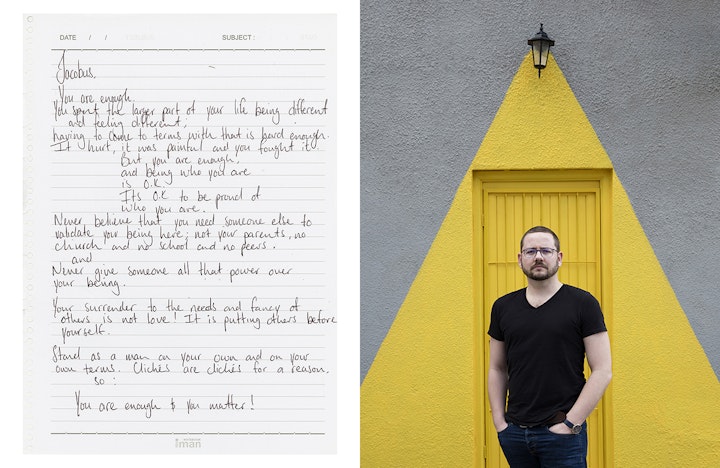 DATE / /
SUBJECT :
Jacobus,
You are enough.
You spent the larger part of your life being different
and feeling different,
having to come to terms with that is hard enough.
It hurt, it was painful and you fought it.
But you are enough,
and being who you are
is O.K.
Its O.K to be proud of
who you are.
Never believe that you need someone else to
validate your being here; not your parents, no
church and no school and no peers.
and
Never give someone all that power over
your being.
Your surrender to the needs and fancy of
others is not love! It is putting others before
yourself.
Stand as a man on your own and on your
own terms. Clichés are clichés for a reason.
so :
You are enough & you matter!
iman